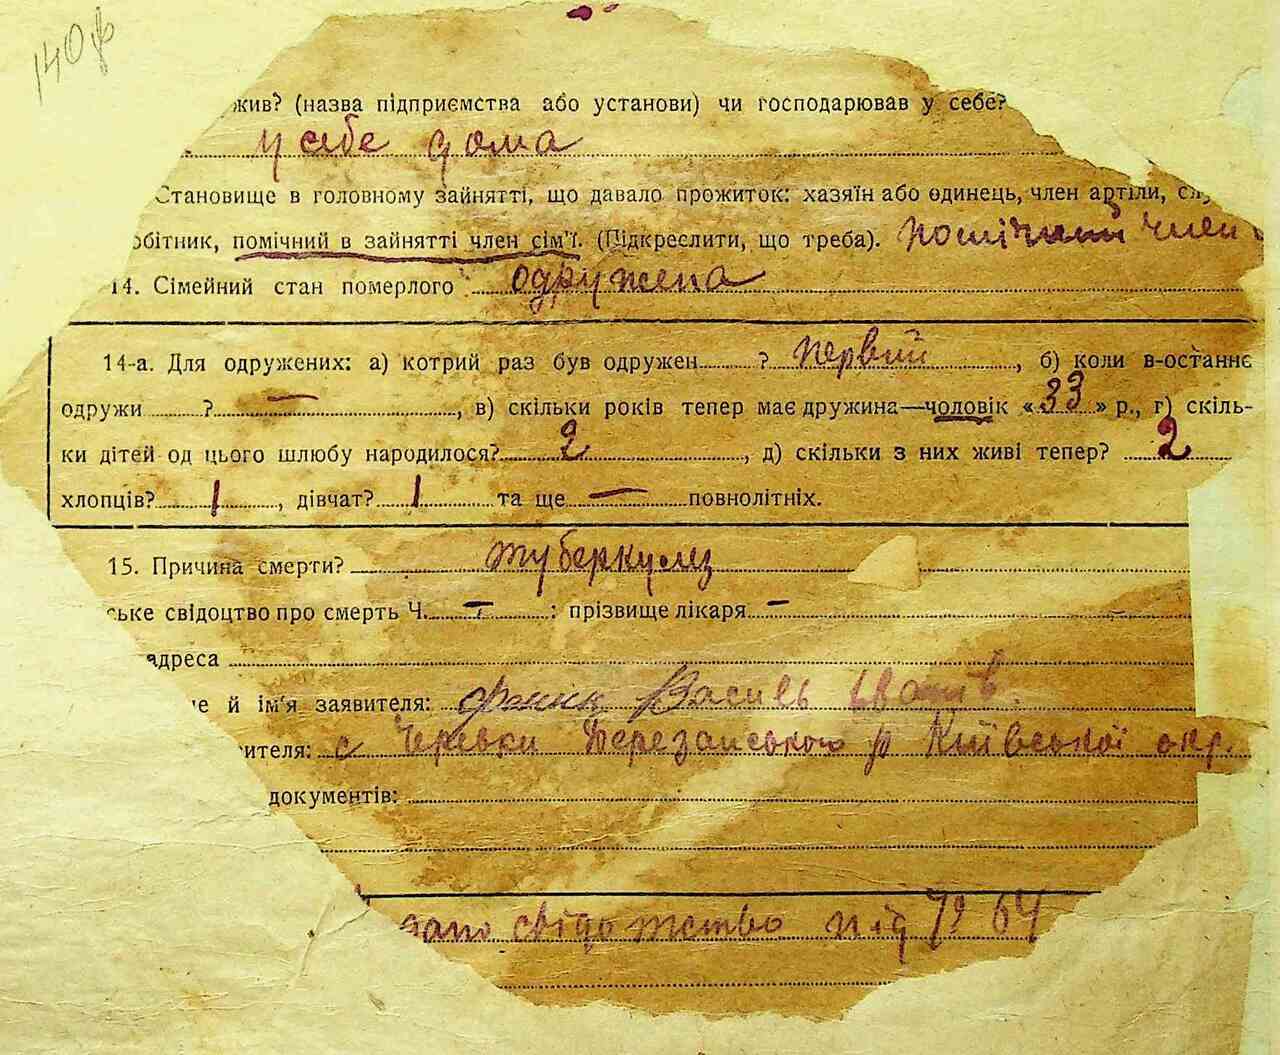 140ф
жив? (назва підприємства або установи) чи господарював у себе?
у себе дома
Становище в головному зайнятті, що давало прожиток: хазяїн або одинець, член артіли, слу
обітник, помічний в зайнятті член сім'ї. (Підкреслити, що треба). помічний член
14. Сімейний стан померлого одружена
14-а. Для одружених: а) котрий раз був одружен ? первий, б) коли в-останнє
одружи ? —, в) скільки років тепер має дружина—чоловік «33» р., г) скіль-
ки дітей од цього шлюбу народилося? 2, д) скільки з них живі тепер? 2
хлопців? 1, дівчат? 1 та ще — повнолітніх.
15. Причина смерти? туберкулез
ське свідоцтво про смерть Ч. — : прізвище лікаря —
адреса
е й ім'я заявителя: Василь Іванів
вителя: с Черевки Березанського р Київської окр.
документів:
дано свідотство під № 64